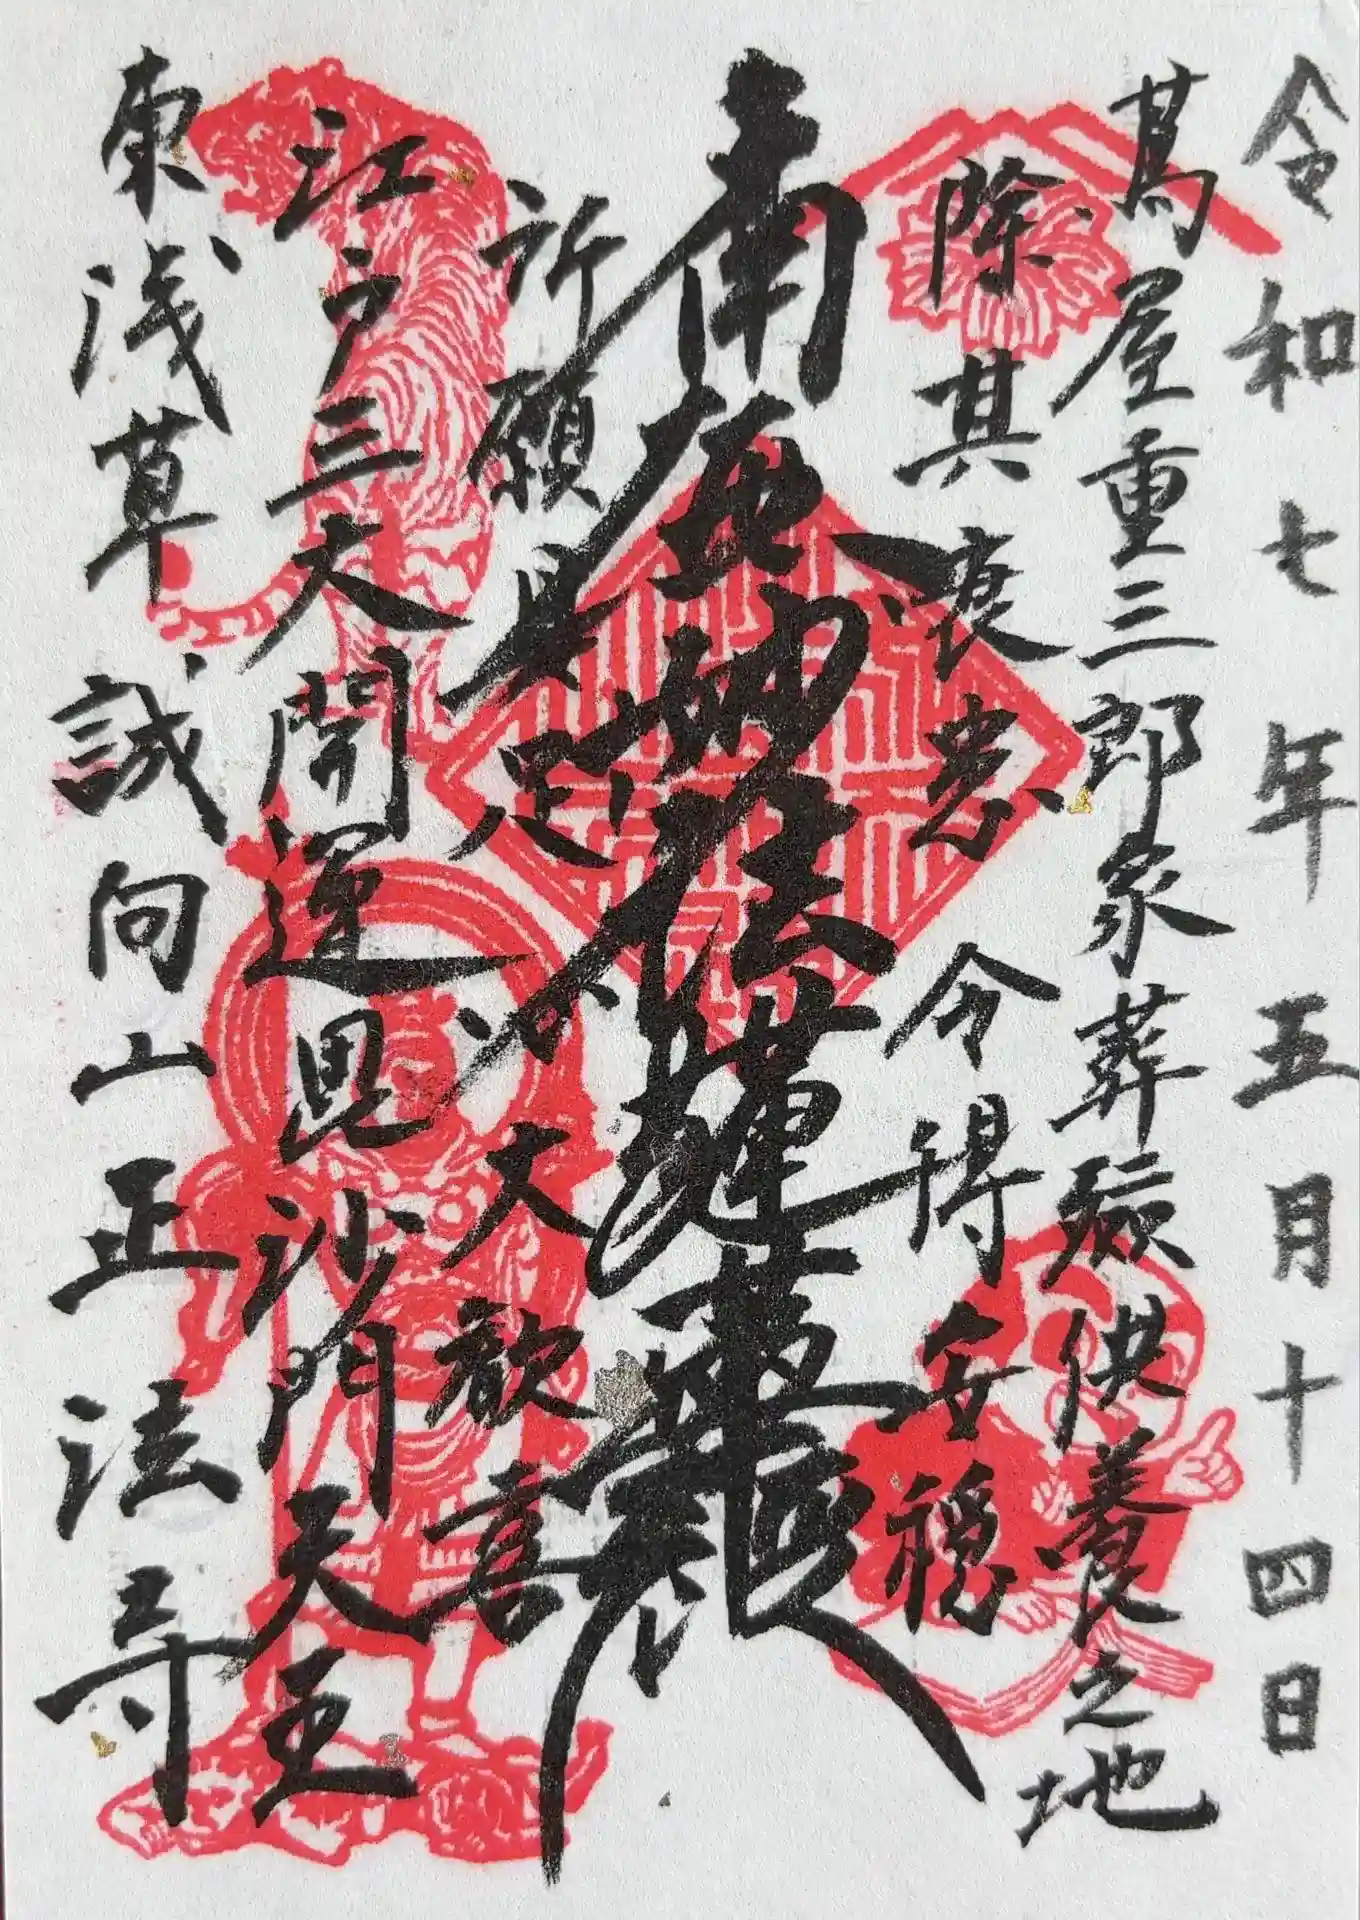 令和七年五月十四日
蔦屋重三郎家葬殮供養之地
除其衰患令得安穏
南無妙法蓮華經
所願具足心大歓喜
江戸三大開運毘沙門天王
東浅草 誠向山正法寺